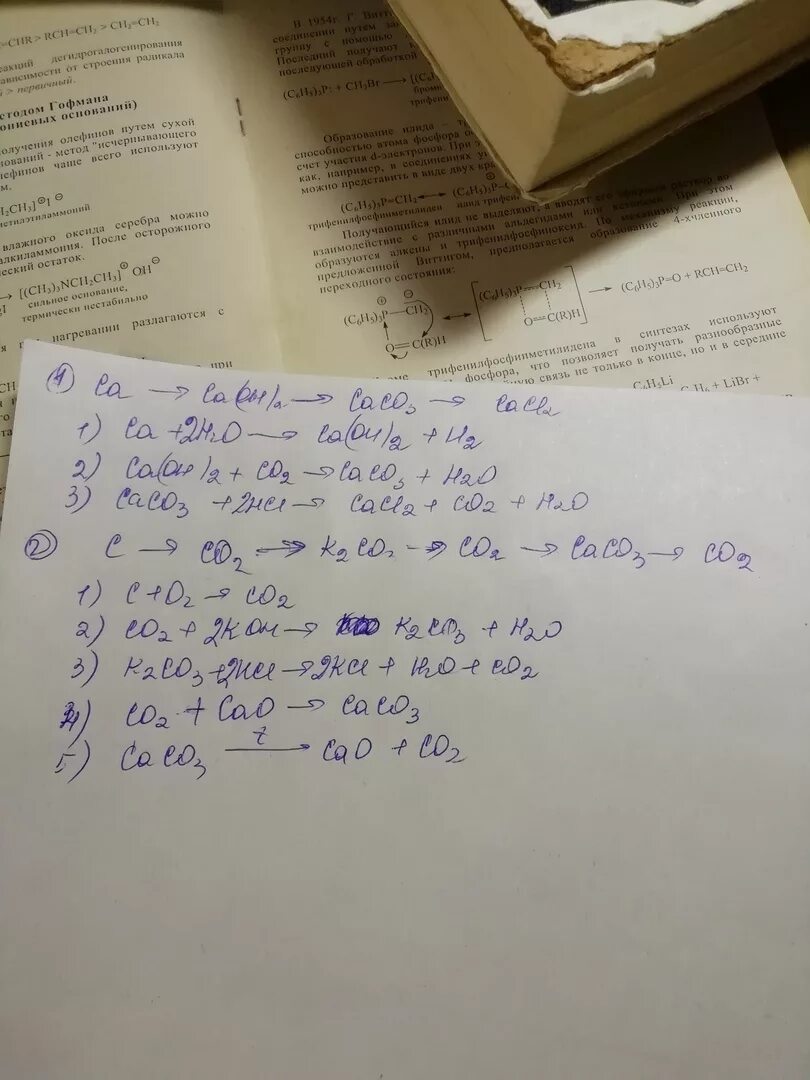 =CHR > RCH=CH₂ > CH₂=CH₂
реакций дегидрогалогенирования
зависимости от строения радикала
> первичный.
методом Гофмана
ониевых оснований)
получения олефинов путем сухой
оснований - метод "исчерпывающего
олефинов чаще всего используют
влажного оксида серебра можно
алкиламмония. После осторожного
→ [(CH₃)₃NCH₂CH₃]⊕ OH⊖
сильное основание,
термически нестабильно
нагревании разлагаются с
при
В 1954г. Г. Витт
соединении путем за
группу с помощью
Последний получают
последующей обработкой
(C₆H₅)₃P: + CH₃Br →
Образование илида –
способностью атома фосфора
счет участия d-электронов. При э
как, например, в соединениях
можно представить в виде двух
(C₆H₅)₃P=CH₂ ↔ (C₆H₅)₃P-C
трифенилфосфинметилилен
Получающийся илид не выделяют, а вводят его эфирный раствор во
взаимодействие с различными альдегидами или кетонами. При этом
образуются алкены и трифенилфосфиноксид. По механизму реакции,
предложенной Виттигом, предполагается образование 4-хчленного
переходного состояния:
(C₆H₅)₃P—CH₂ ↔ [(C₆H₅)₃P—CH₂ → (C₆H₅)₃P=O + RCH=CH₂
O=C(R)H O=C(R)H
трифенилфосфинметилидена в синтезах используют
фосфора, что позволяет получать разнообразные
связь не только в конце, но и в середине
C₆H₅Li
+ LiBr +
① Ca → Ca(OH)₂ → CaCO₃ → CaCl₂
1) Ca + 2H₂O → Ca(OH)₂ + H₂
2) Ca(OH)₂ + CO₂ → CaCO₃ + H₂O
3) CaCO₃ + 2HCl → CaCl₂ + CO₂ + H₂O
② C → CO₂ → K₂CO₃ → CO₂ → CaCO₃ → CO₂
1) C + O₂ → CO₂
2) CO₂ + 2KOH → K₂CO₃ + H₂O
3) K₂CO₃ + 2HCl → 2KCl + H₂O + CO₂
4) CO₂ + CaO → CaCO₃
5) CaCO₃ —t→ CaO + CO₂